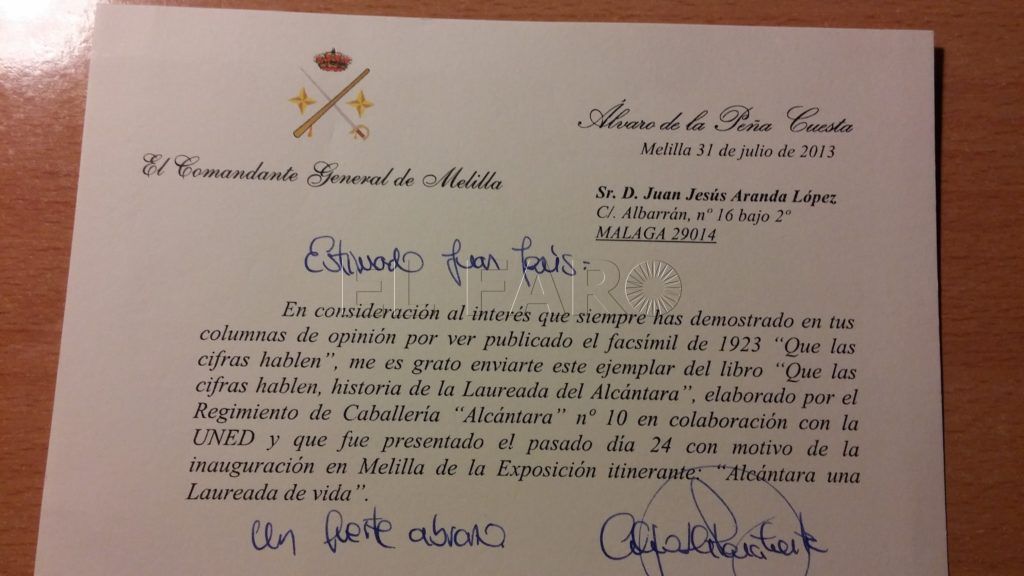 Álvaro de la Peña Cuesta
Melilla 31 de julio de 2013
El Comandante General de Melilla
Sr. D. Juan Jesús Aranda López
C/. Albarrán, nº 16 bajo 2º
MALAGA 29014
Estimado Juan Jesús:
EL FARO
En consideración al interés que siempre has demostrado en tus
columnas de opinión por ver publicado el facsímil de 1923 “Que las
cifras hablen”, me es grato enviarte este ejemplar del libro “Que las
cifras hablen, historia de la Laureada del Alcántara”, elaborado por el
Regimiento de Caballería “Alcántara” nº 10 en colaboración con la
UNED y que fue presentado el pasado día 24 con motivo de la
inauguración en Melilla de la Exposición itinerante: “Alcántara una
Laureada de vida”.
Un fuerte abrazo